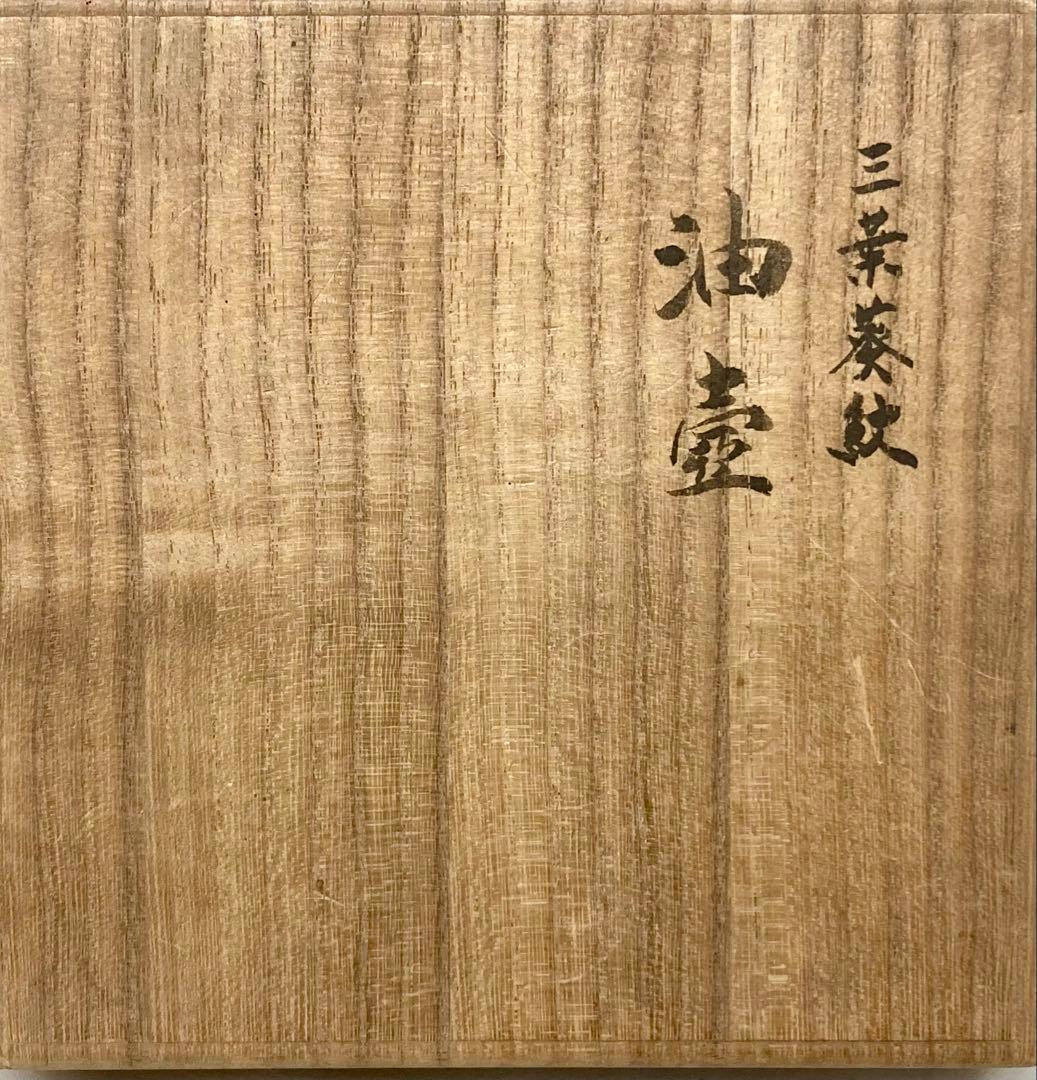 三葉葵紋
油壺